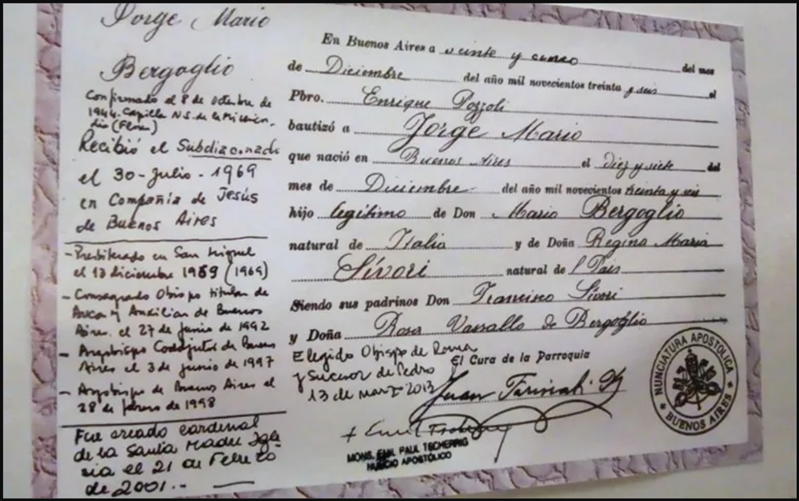 Jorge Mario
Bergoglio
Confirmado el 8 de Octubre de
1944. Capilla N.S. de la Misericor-
dia (Flores)
Recibió el Subdiaconado
el 30-Julio-1969
en Compañía de Jesús
de Buenos Aires
- Presbiterado en San Miguel
el 13 diciembre 1989 (1969)
- Consagrado Obispo titular de
Auca y Auxiliar de Buenos
Aires. el 27 de junio de 1992
- Arzobispo Coadjutor de Buenos
Aires el 3 de junio de 1997
- Arzobispo de Buenos Aires el
28 de febrero de 1998
Fue creado cardenal
de la Santa Madre Igle
sia el 21 de Febrero
de 2001.-
En Buenos Aires a veinte y cinco del mes
de Diciembre del año mil novecientos treinta y seis el
Pbro. Enrique Pozzoli
bautizó a Jorge Mario
que nació en Buenos Aires el diez y siete del
mes de Diciembre del año mil novecientos treinta y seis
hijo legítimo de Don Mario Bergoglio
natural de Italia y de Doña Regina María
Sívori natural de l País
Siendo sus padrinos Don Francisco Sívori
y Doña Rosa Vassallo de Bergoglio
Elegido Obispo de Roma
y Sucesor de Pedro
13 de marzo 2013
El Cura de la Parroquia
Juan
+ Emil
MONS. EMIL PAUL TSCHERRIG
NUNCIO APOSTÓLICO
NUNCIATURA APOSTOLICA
BUENOS AIRES